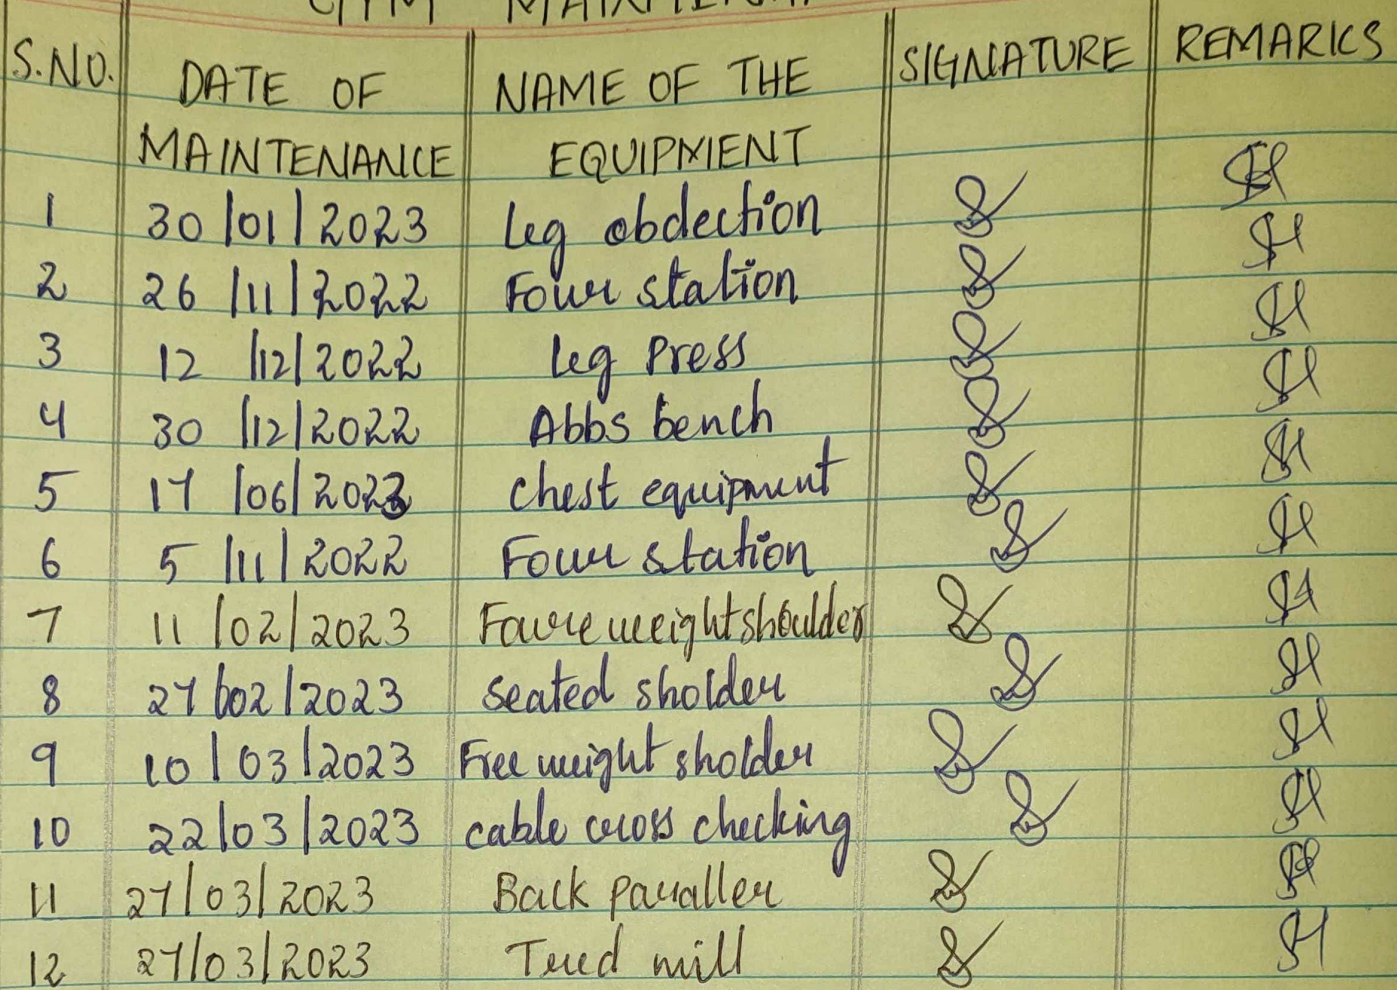 GYM
S.NO. DATE OF MAINTENANCE NAME OF THE EQUIPMENT SIGNATURE REMARKS
1 30/01/2023 Leg obdection
2 26/11/2022 Four station
3 12/12/2022 Leg Press
4 30/12/2022 Abbs bench
5 17/06/2023 Chest equipment
6 5/11/2022 Four station
7 11/02/2023 Foure weight shoulder
8 27/02/2023 Seated sholder
9 10/03/2023 Free weight sholder
10 22/03/2023 cable cross checking
11 27/03/2023 Back paraller
12 27/03/2023 Tred mill